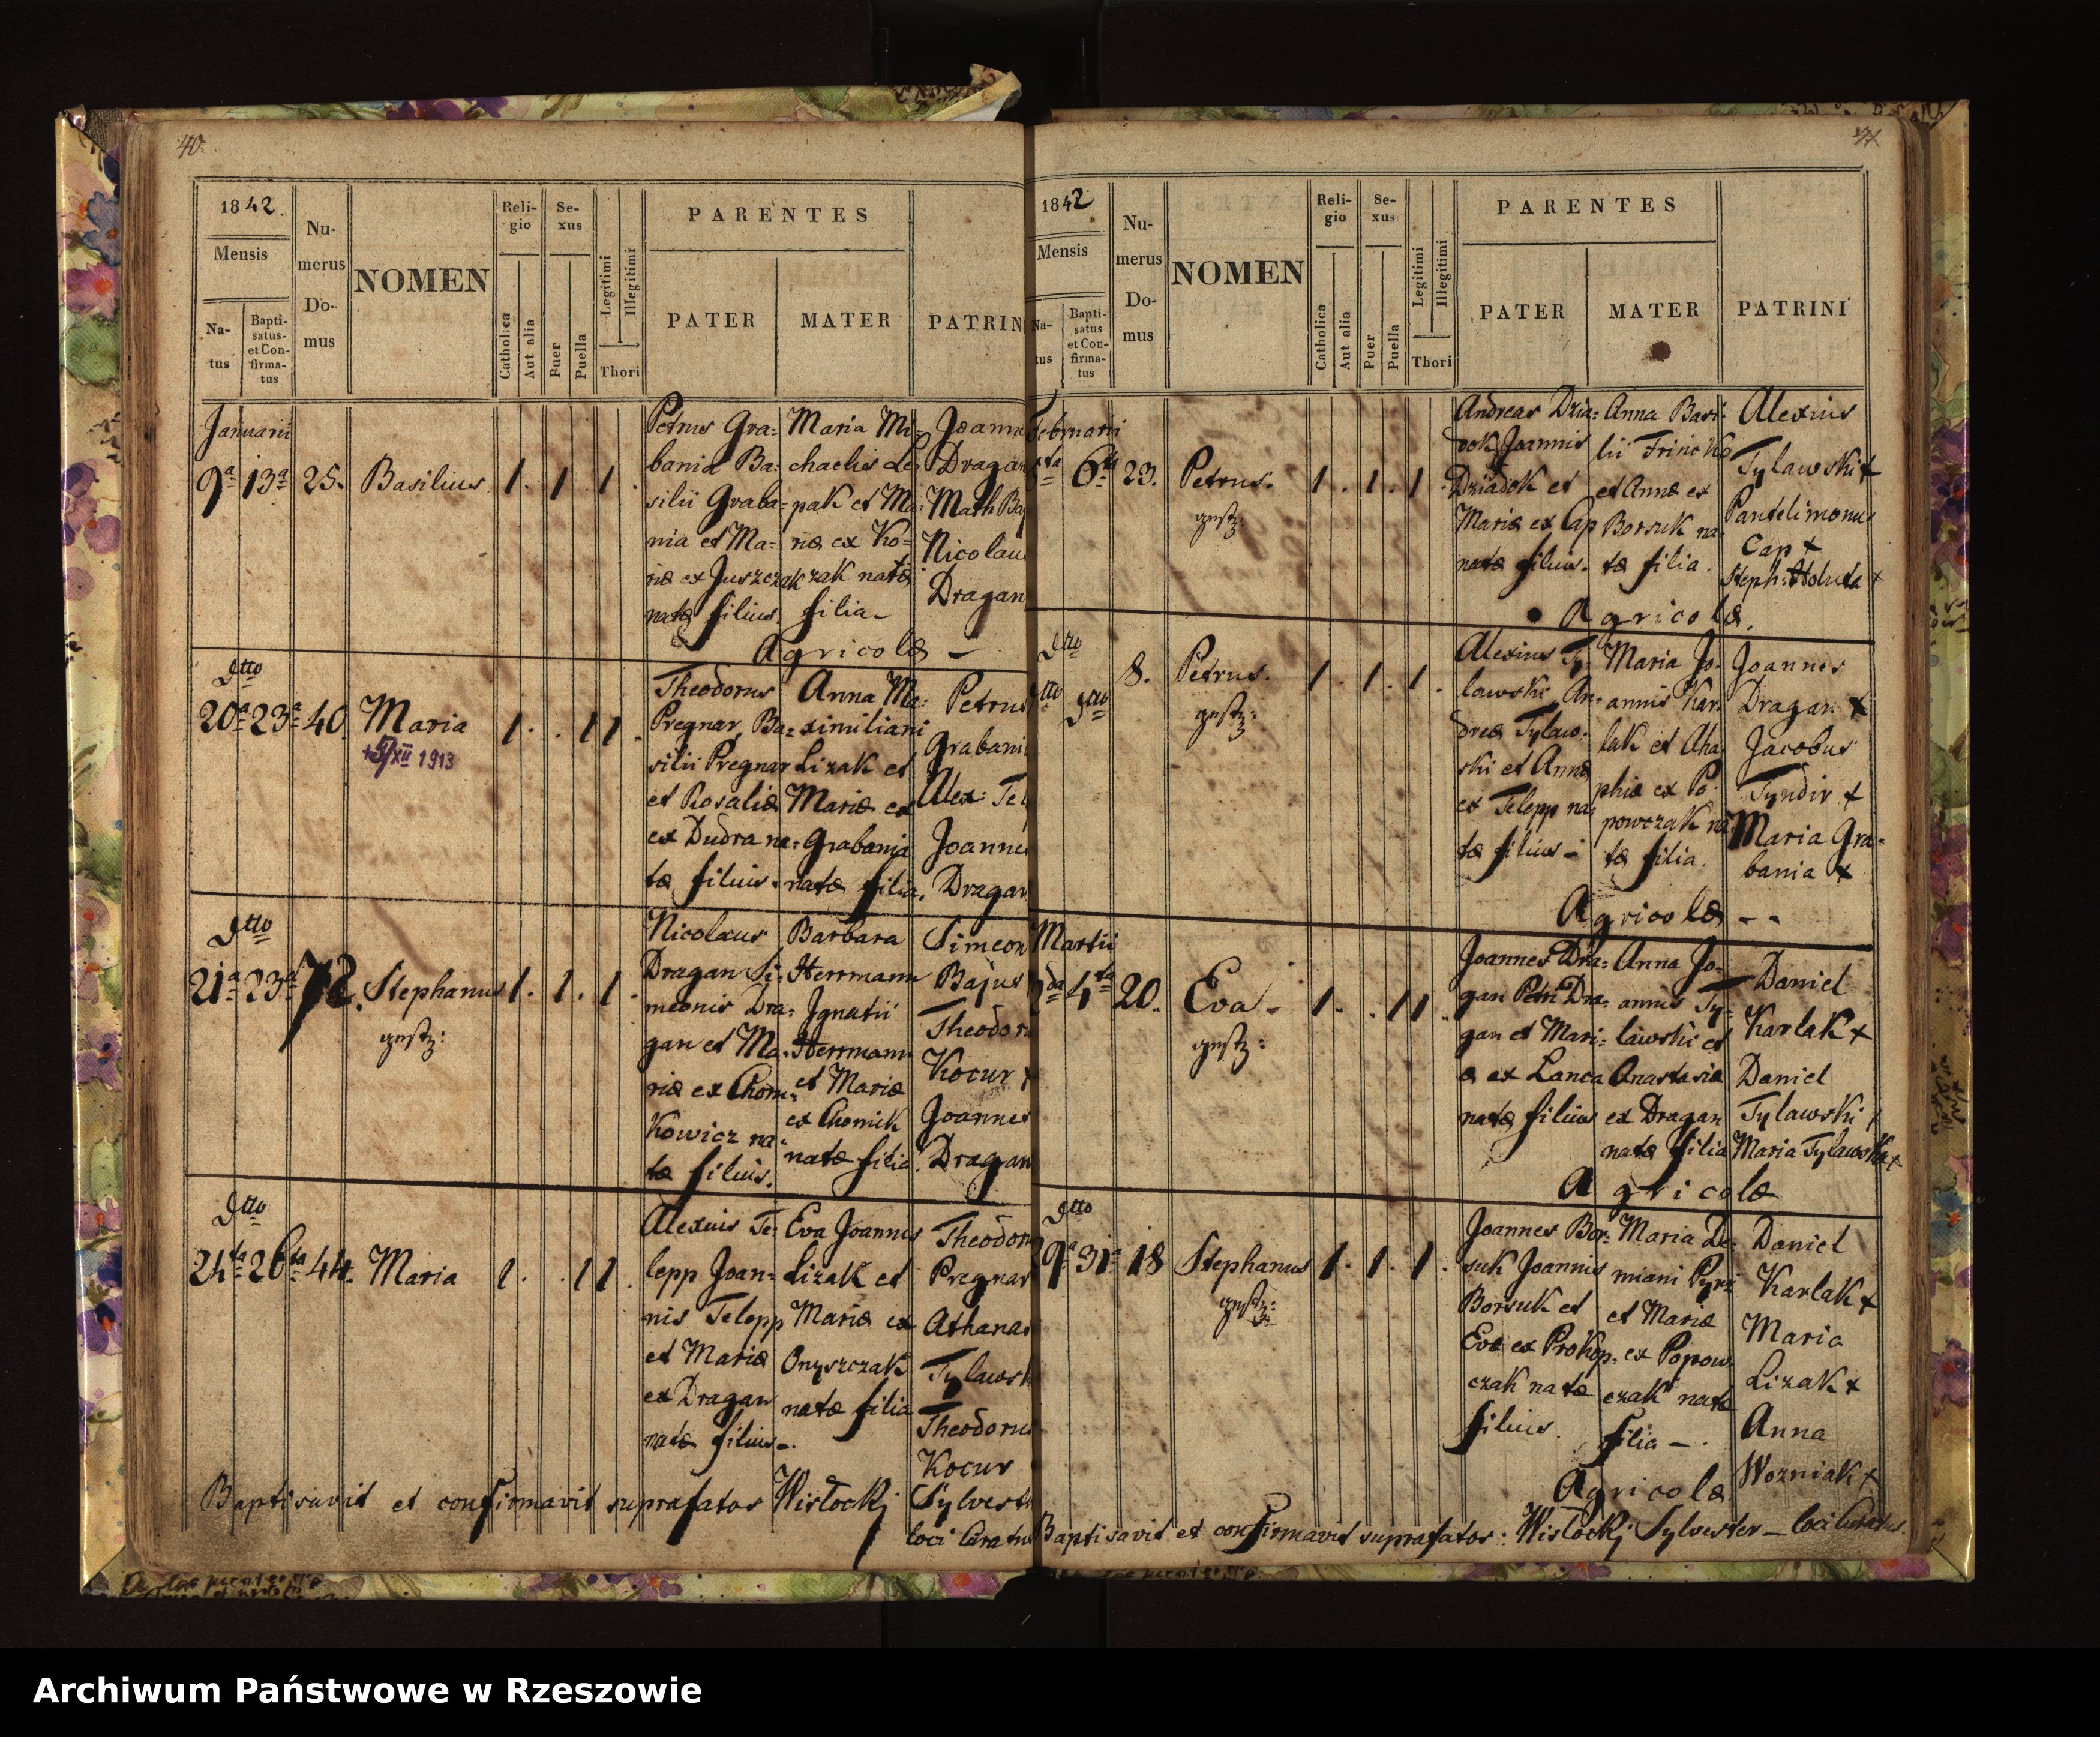 40.
1842.
Mensis
Na-
tus
Bapti-
satus
et Con-
firma-
tus
Nu-
merus
Do-
mus
NOMEN
Reli-
gio
Catholica
Aut alia
Se-
xus
Puer
Puella
Legitimi
Illegitimi
Thori
PARENTES
PATER
MATER
PATRIN
Januarii
9a 13a 25. Basilius 1. 1 1.
Petrus Gra=
bania Ba=
silii Graba=
nia et Ma=
riæ ex Juszczak
natæ filius.
Maria Mi
chaelis Le
pak et Ma
riæ ex Ko=
zak natæ
filia
Joanne
Dragan
Math Baj
Nicolau
Dragan
Agricolæ
Dtto
20a 23a 40. Maria 1. . 1 1.
+5/XII 1913
Theodorus
Pregnar, Ba=
silii Pregnar
et Rosaliæ
ex Dudra na=
tæ filius.
Anna Ma=
ximiliani
Lizak et
Mariæ ex
Grabania
natæ filia.
Petrus
Grabani
Alex: Tel
Joannes
Dragan
Dtto
21a 23a 72. Stephanus 1. 1. 1.
Nicolaus
Dragan Si=
meonis Dra=
gan et Ma=
riæ ex Chom=
kowicz na=
tæ filius.
Barbara
Herrmann
Ignatii
Herrmann
et Mariæ
ex Chomik
natæ filia.
Simeon
Bajus
Theodor
Kocur +
Joannes
Dragan
Dtto
24ta 26ta 44. Maria 1. . 1 1.
Alexius Te=
lepp Joan=
nis Telepp
et Mariæ
ex Dragan
natæ filius.
Eva Joannis
Lizak et
Mariæ ex
Onyszczak
natæ filia
Theodor
Pregnar
Athanas
Tylawsk
Theodorus
Kocur
Baptisavit et confirmavit suprafatos Wisłockj Sylvest
loci Curatus
1842
Mensis
Na-
tus
Bapti-
satus
et Con-
firma-
tus
Nu-
merus
Do-
mus
NOMEN
Reli-
gio
Catholica
Aut alia
Se-
xus
Puer
Puella
Legitimi
Illegitimi
Thori
PARENTES
PATER
MATER
PATRINI
Februarii
5ta 6ta 23. Petrus. 1. 1. 1.
Andreas Dzia=
dok Joannis
Dziadok et
Mariæ ex Cap
natæ filius.
Anna Basi=
lii Frincko
et Annæ ex
Borsuk na=
tæ filia.
Alexius
Tylawski +
Pantelimonus
Cap +
Steph: Holuta +
Agricolæ.
Dtto
Dtto Dtto 8. Petrus. 1. 1. 1.
Alexius Ty=
lawski An=
dreæ Tylaw=
ski et Annæ
ex Telepp na=
tæ filius
Maria Jo=
annis Kar=
lak et Aha
phiæ ex Po=
powczak na
tæ filia.
Joannes
Dragan +
Jacobus
Tyndir +
Maria Gra=
bania +
Agricolæ
Martii
2da 4ta 20. Eva 1. . 1 1.
Joannes Dra=
gan Petri Dra=
gan et Mari=
æ ex Lanca
natæ filius
Anna Jo=
annis Ty=
lawski et
Anastasiæ
ex Dragan
natæ filia
Daniel
Karlak +
Daniel
Tylawski +
Maria Tylawska +
Agricolæ
Dtto
9a 31a 18 Stephanus 1. 1. 1.
Joannes Bor=
suk Joannis
Borsuk et
Evæ ex Prokop=
czak natæ
filius.
Maria De=
miani Pyrz
et Mariæ
ex Popow
czak natæ
filia
Daniel
Karlak +
Maria
Lizak +
Anna
Wozniak +
Agricolæ
Baptisavit et confirmavit suprafatos: Wisłockj Sylvester – loci Curatus.
Archiwum Państwowe w Rzeszowie